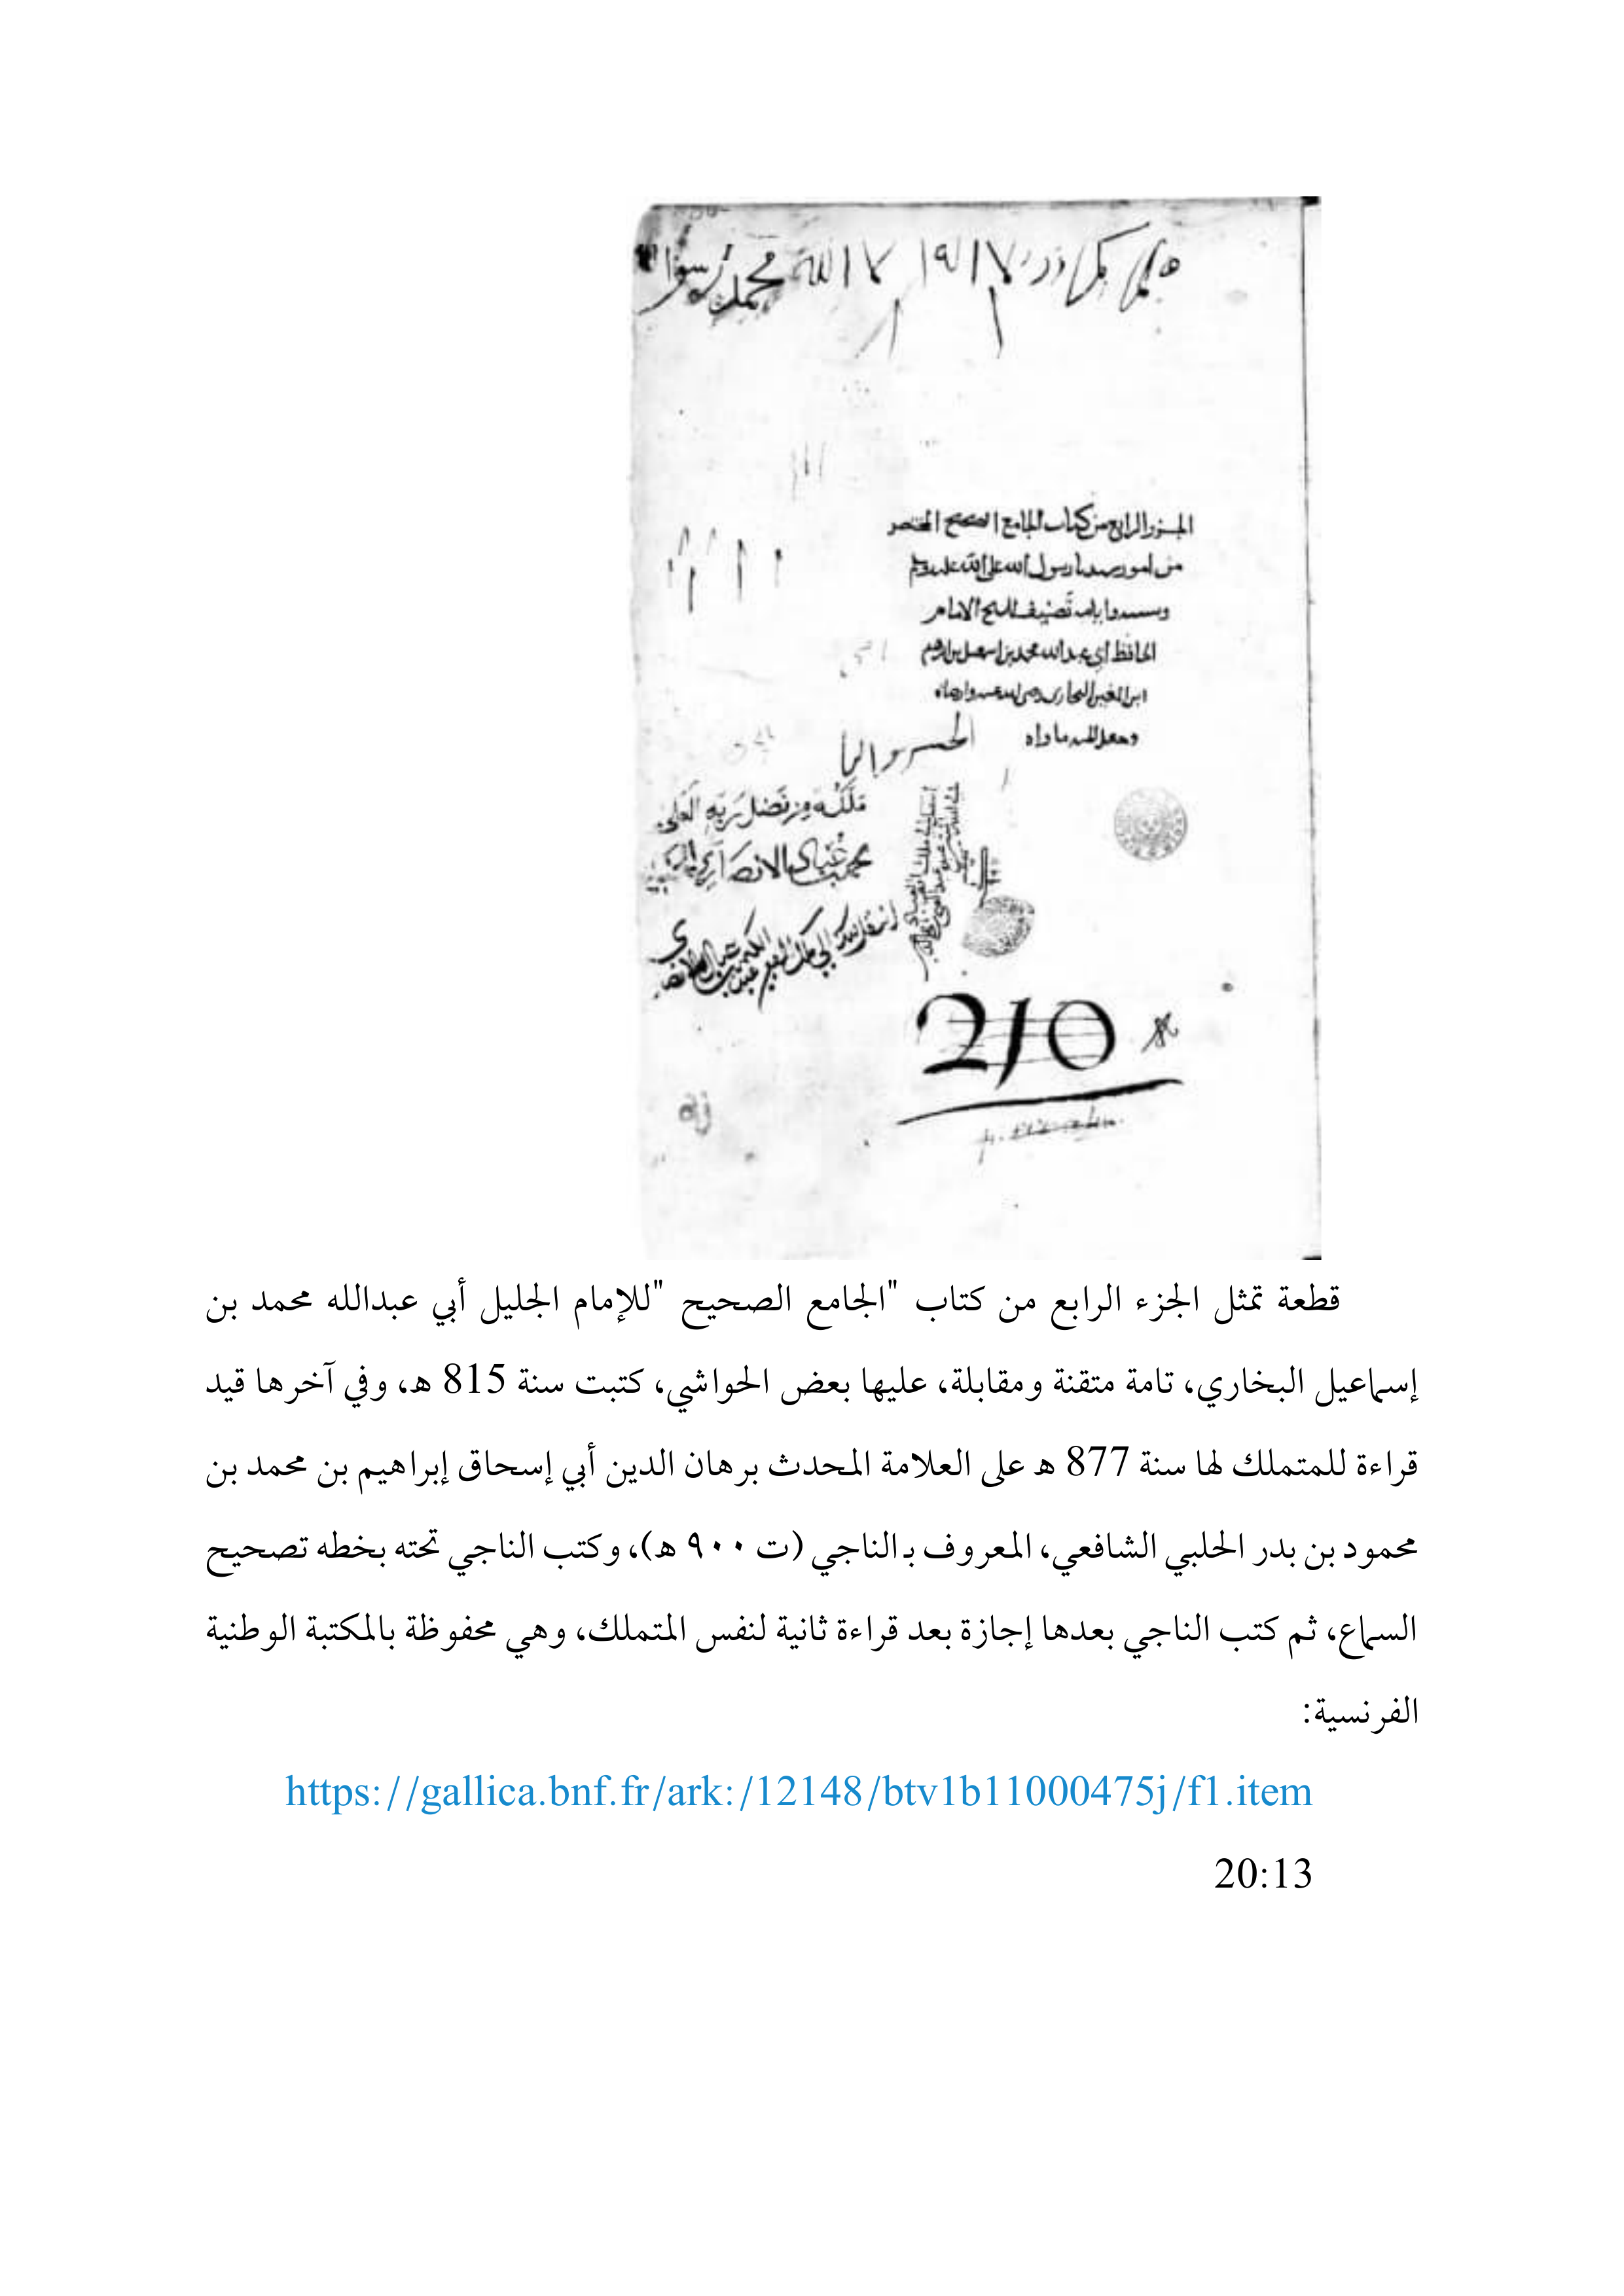 لا اله الا الله محمد رسول
الجزو الرابع من كتاب الجامع الصحيح المختصر
من امور سيدنا رسول الله صلى الله عليه وسلم
وسننه وايامه تصنيف الشيخ الامام
الحافظ ابي عبد الله محمد بن اسمعيل بن ابرهيم
ابن المغيره البخاري رضي الله عنه وارضاه
وجعل الجنه ماواه
ملكه من فضل ربه العلي
محمد الانصاري
210
قطعة تمثل الجزء الرابع من كتاب "الجامع الصحيح "للإمام الجليل أبي عبدالله محمد بن
إسماعيل البخاري، تامة متقنة ومقابلة، عليها بعض الحواشي، كتبت سنة 815 هـ، وفي آخرها قيد
قراءة للمتملك لها سنة 877 هـ على العلامة المحدث برهان الدين أبي إسحاق إبراهيم بن محمد بن
محمود بن بدر الحلبي الشافعي، المعروف بـ الناجي (ت ٩٠٠ هـ)، وكتب الناجي تحته بخطه تصحيح
السماع، ثم كتب الناجي بعدها إجازة بعد قراءة ثانية لنفس المتملك، وهي محفوظة بالمكتبة الوطنية
الفرنسية:
https://gallica.bnf.fr/ark:/12148/btv1b11000475j/f1.item
20:13